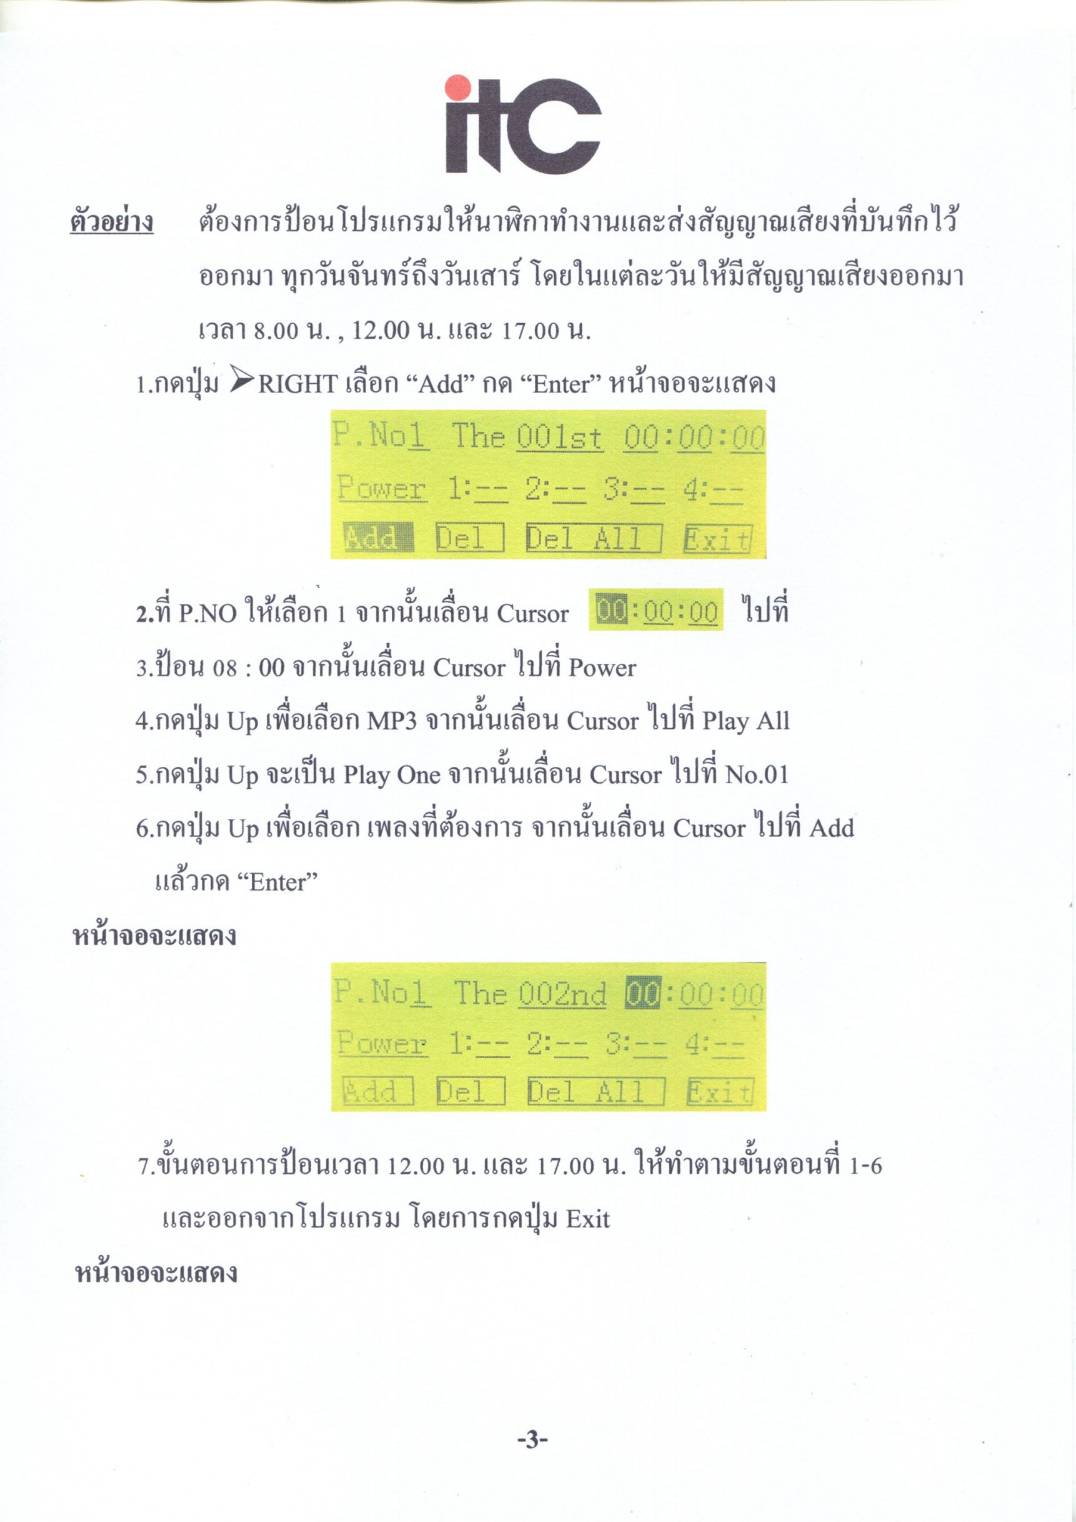 itc
ตัวอย่าง ต้องการป้อนโปรแกรมให้นาฬิกาทำงานและส่งสัญญาณเสียงที่บันทึกไว้
ออกมา ทุกวันจันทร์ถึงวันเสาร์ โดยในแต่ละวันให้มีสัญญาณเสียงออกมา
เวลา 8.00 น. , 12.00 น. และ 17.00 น.
1.กดปุ่ม ➢RIGHT เลือก “Add” กด “Enter” หน้าจอจะแสดง
P.No1 The 001st 00:00:00
Power 1:-- 2:-- 3:-- 4:--
Add Del Del All Exit
2.ที่ P.NO ให้เลือก 1 จากนั้นเลื่อน Cursor 00:00:00 ไปที่
3.ป้อน 08 : 00 จากนั้นเลื่อน Cursor ไปที่ Power
4.กดปุ่ม Up เพื่อเลือก MP3 จากนั้นเลื่อน Cursor ไปที่ Play All
5.กดปุ่ม Up จะเป็น Play One จากนั้นเลื่อน Cursor ไปที่ No.01
6.กดปุ่ม Up เพื่อเลือก เพลงที่ต้องการ จากนั้นเลื่อน Cursor ไปที่ Add
แล้วกด “Enter”
หน้าจอจะแสดง
P.No1 The 002nd 00:00:00
Power 1:-- 2:-- 3:-- 4:--
Add Del Del All Exit
7.ขั้นตอนการป้อนเวลา 12.00 น. และ 17.00 น. ให้ทำตามขั้นตอนที่ 1-6
และออกจากโปรแกรม โดยการกดปุ่ม Exit
หน้าจอจะแสดง
-3-